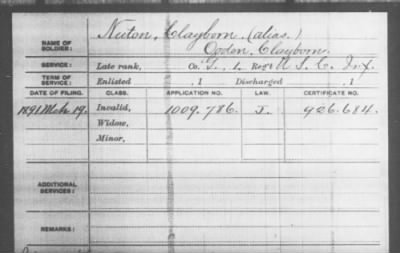 NAME OF SOLDIER: Nuton, Clayborn. (alias.)
Ogden, Clayborn.
SERVICE: Late rank, Co. G, 1. Reg't U.S.C. Inf.
TERM OF SERVICE: Enlisted , 1 Discharged , 1
DATE OF FILING. CLASS. APPLICATION NO. LAW. CERTIFICATE NO.
1891 Mch 19. Invalid, 1009.786. J. 906.684.
Widow,
Minor,
ADDITIONAL SERVICES:
REMARKS: